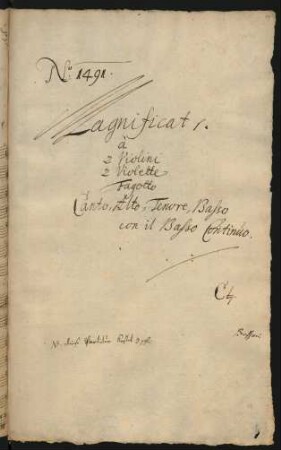 No: 1491.
Magnificat /.
â
2 Violini
2 Violette
Fagotto
Canto, Alto, Tenore, Basso
con il Basso Continuo.